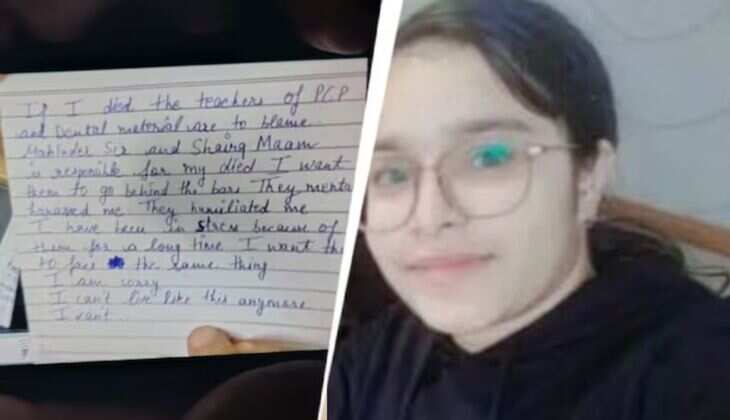 If I died the teachers of PCP
and Dental material are to blame.
Mahinder Ser and Shairg Maam
is responible for my died I want
them to go behind the bars They menta
harassed me They humiliated me
I have been in stress because of
them for a long time I want the
to face the same thing
I am sorry
I can't live like this anymore
I can't...